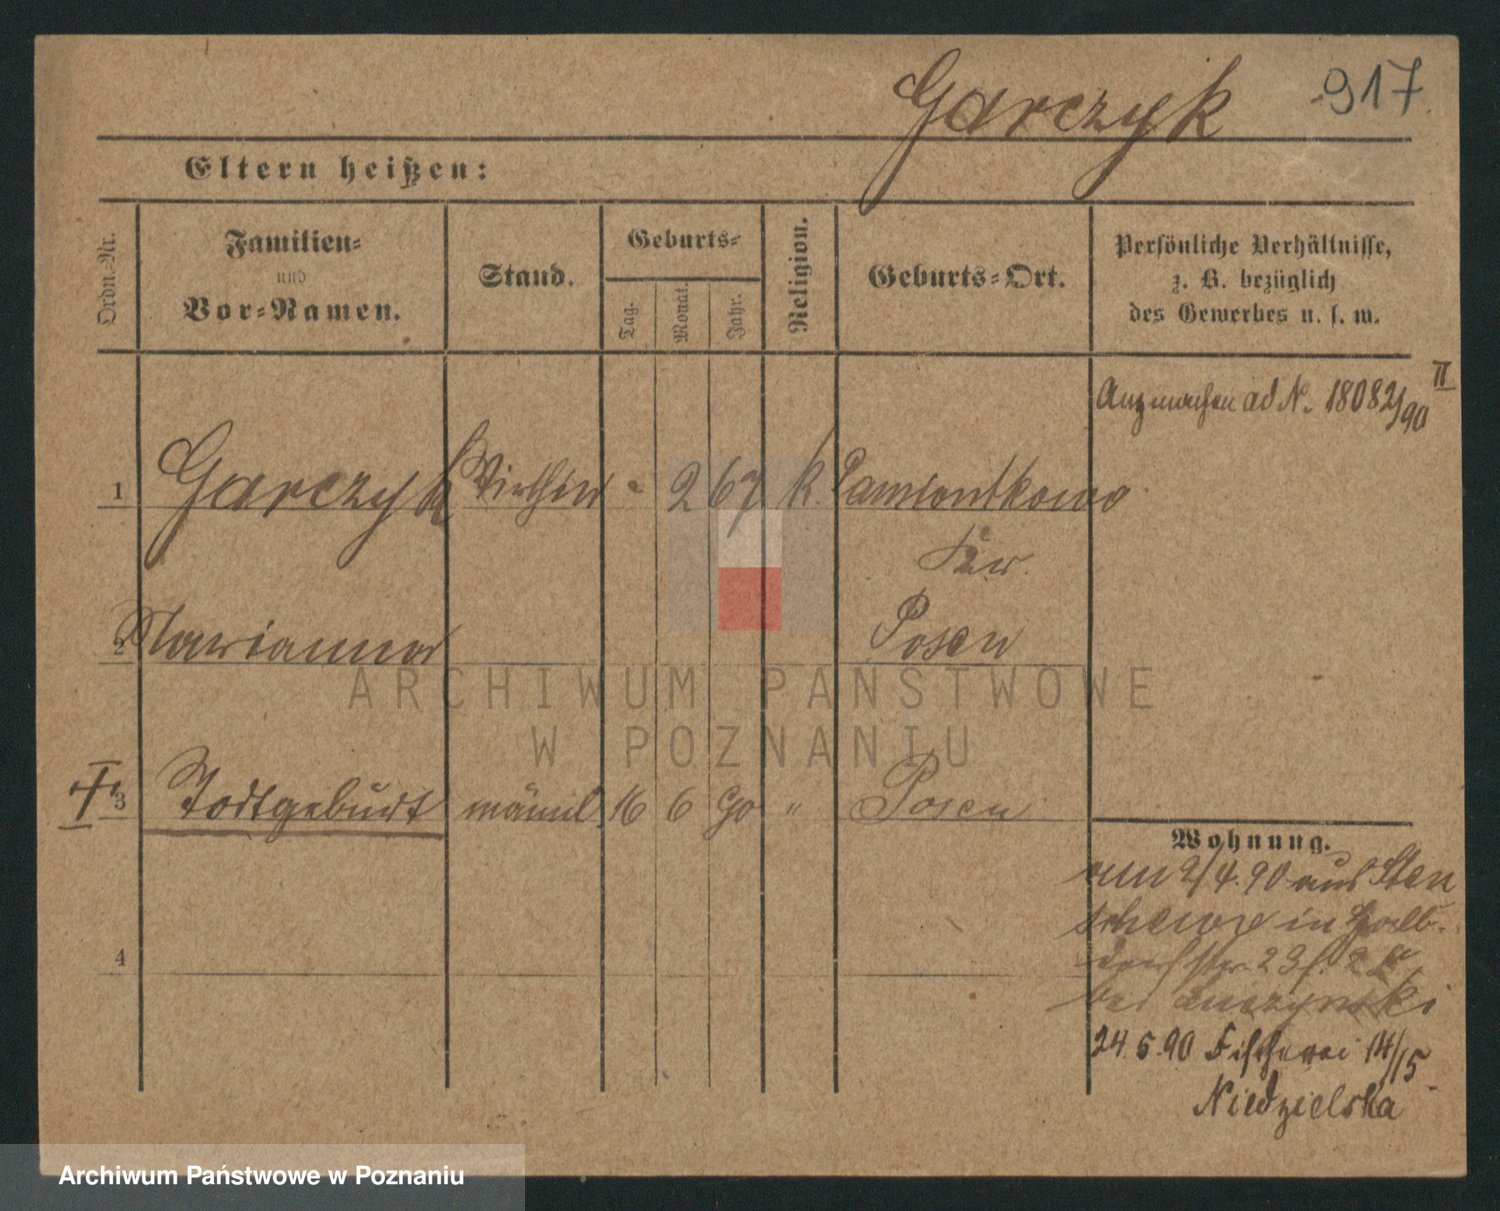 Garczyk 917
Eltern heißen:
Ordn.-Nr.
Familien-
und
Vor-Namen.
Stand.
Geburts-
Tag.
Monat.
Jahr.
Religion.
Geburts-Ort.
Persönliche Verhältnisse,
z. B. bezüglich
des Gewerbes u. s. w.
II
ad N. 18082/90
1 Garczyk Wirthin - 2 67 k. Pamiontkowo
Kr.
2 Marianna Posen
3 Todtgeburt männl. 16 6 90 " Posen
Wohnung.
am 2/4.90 aus Sten
schewo in Halb-
dorfstr. 23
bei
24.6.90 Fischerei 14/15
Niedzielska
4
ARCHIWUM PAŃSTWOWE
W POZNANIU
Archiwum Państwowe w Poznaniu